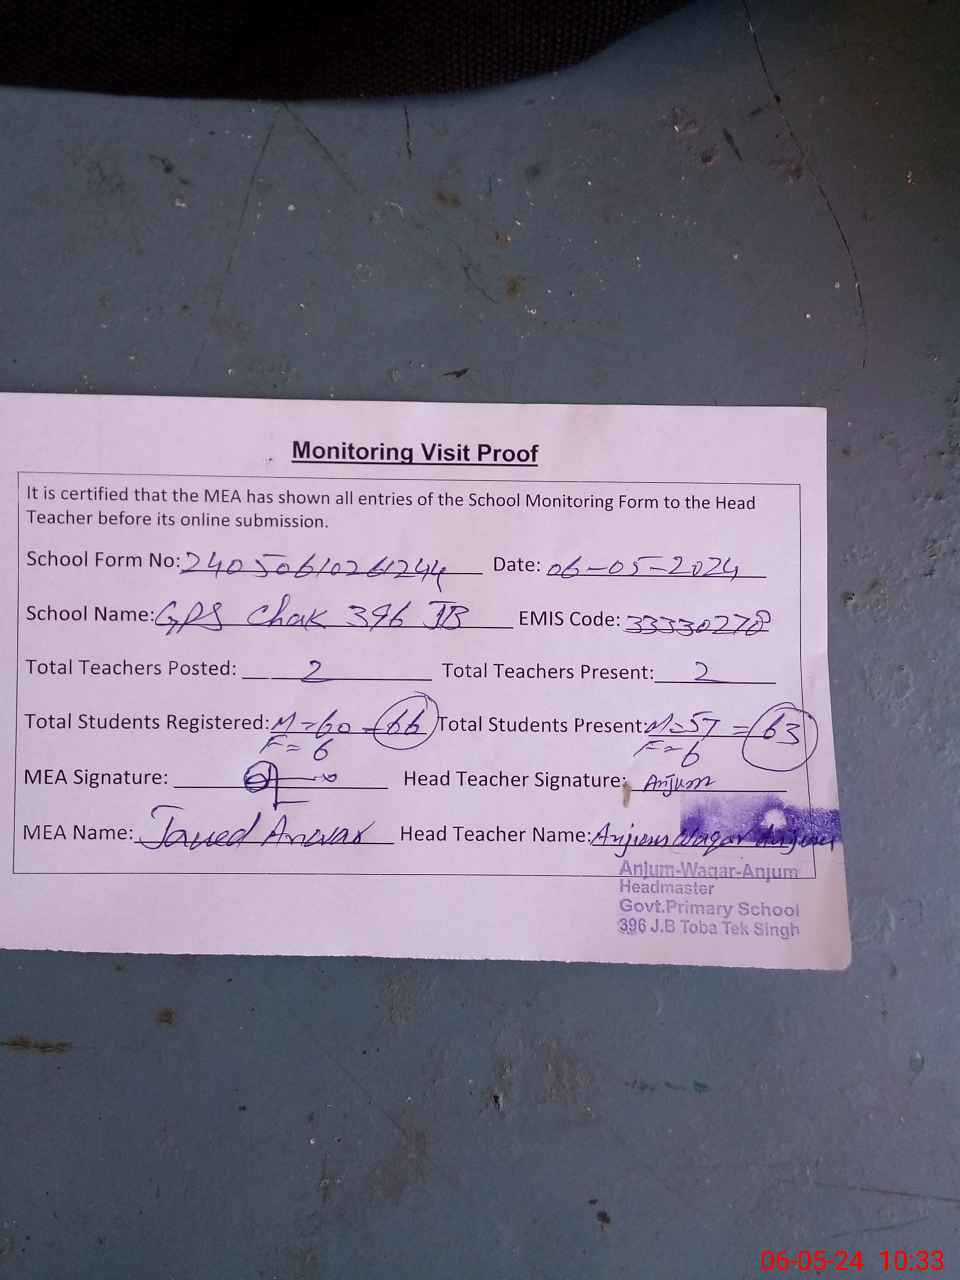 Monitoring Visit Proof
It is certified that the MEA has shown all entries of the School Monitoring Form to the Head
Teacher before its online submission.
School Form No: 24050610261244 Date: 06-05-2024
School Name: GPS Chak 396 JB EMIS Code: 33330278
Total Teachers Posted: 2 Total Teachers Present: 2
Total Students Registered: M=60 = 66 Total Students Present: M=57 = 63
F=6 F=6
MEA Signature: Head Teacher Signature: Anjum
MEA Name: Javed Anwar Head Teacher Name: Anjum Waqar Anjum
Anjum-Waqar-Anjum
Headmaster
Govt.Primary School
396 J.B Toba Tek Singh
06-05-24 10:33